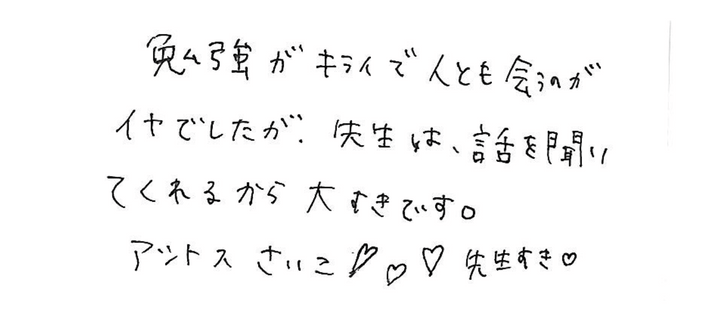 勉強がキライで人とも会うのが
イヤでしたが、先生は、話を聞い
てくれるから大すきです。
アットス さいこ♡♡♡ 先生すき♡